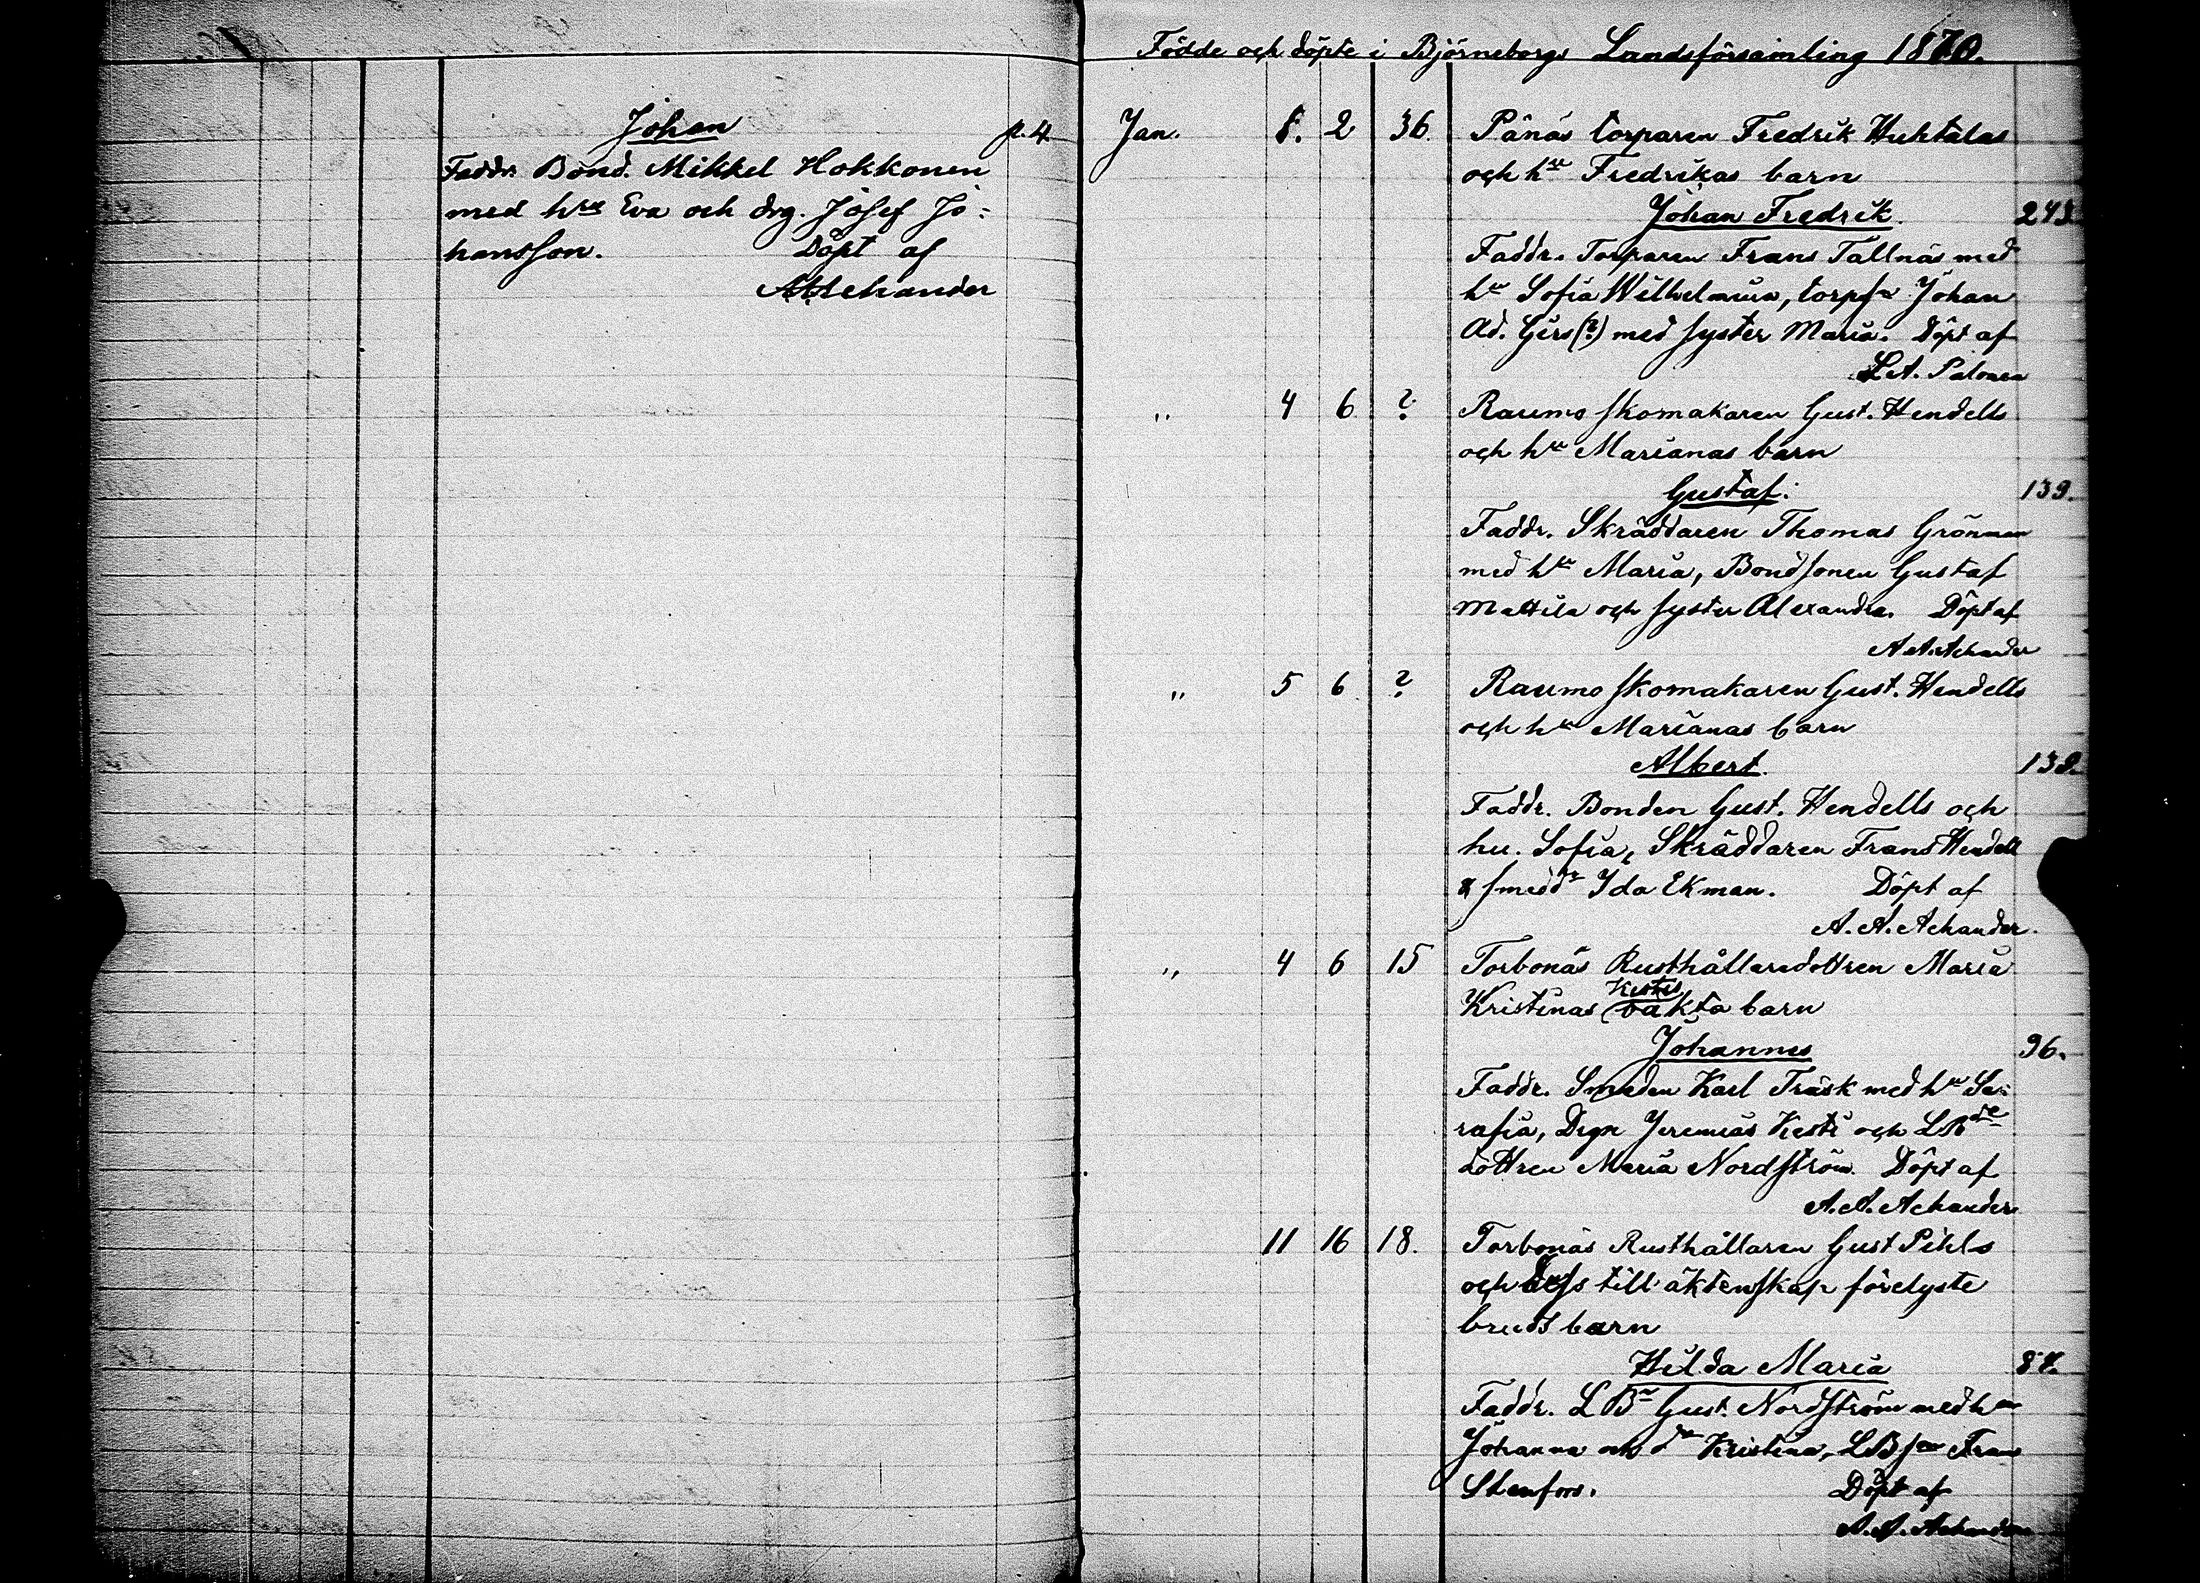 Johan p. 4
Faddr. Bond. Mikkel Hokkonen
med hru Eva och drg. Josef Jo-
hansson. Döpt af
AAchander
Födde och döpte i Björneborgs Landsförsamling 1870.
Jan. 8. 2 36 Pånäs torparen Fredrik Huhtalas
och hru Fredrikas barn
Johan Fredrik. 243
Faddr. Torparen Frans Tallnäs med
hu Sofia Wilhelmina, torps Johan
Ad. Girs(?) med syster Maria. Döpt af
L.A. Palonen
,, 4 6 ? Raumo skomakaren Gust. Hendells
och hru Marianas barn
Gustaf. 139.
Faddr. Skräddaren Thomas Grönman
med hu Maria, Bondsonen Gustaf
Mattila och syster Alexandra. Döpt af
A A. Achander
,, 5 6 ? Raumo skomakaren Gust. Hendells
och hru Marianas barn
Albert. 139.
Faddr. Bonden Gust. Hendells och
hu. Sofia, Skräddaren Frans Hendell
& smedd Ida Ekman. Döpt af
A. A. Achander.
,, 4 6 15 Torbonäs Rusthållaredottren Maria
Kestis
Kristinas oäkta barn
Johannes 96.
Faddr. Smeden Karl Träsk med hu Se-
rafia, Drgn Jeremias Kesti och LB
dottren Maria Nordström. Döpt af
A. A. Achander
11 16 18. Torbonäs Rusthållaren Gust Pihls
och dess till äktenskap förelyste
bruds barn
Hilda Maria 87.
Faddr. LBn Gust. Nordström med hu
Johanna och dr Kristina, LBson Frans
Stenfors. Döpt af
A. A. Achander